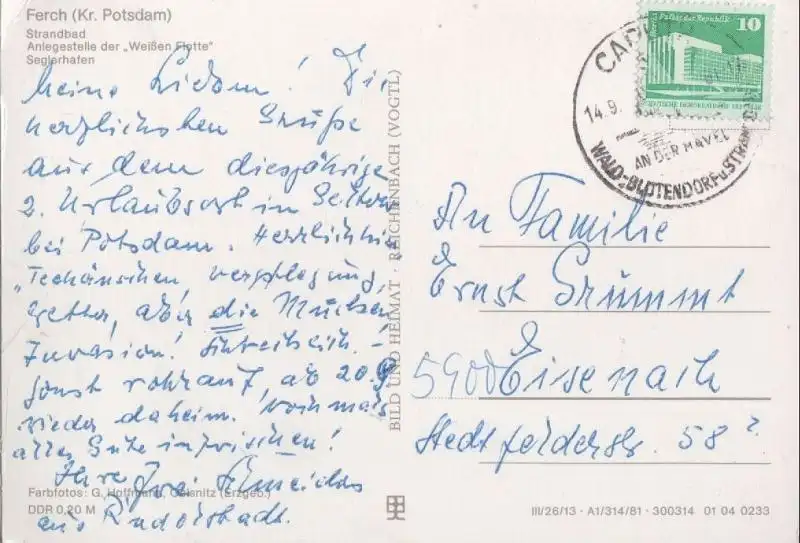 Ferch (Kr. Potsdam)
Strandbad
Anlegestelle der „Weißen Flotte"
Seglerhafen
Meine Lieben! Die
herzlichsten Grüße
aus dem diesjährigen
2. Urlaubsort in Geltow
bei Potsdam. Herrlich
Verpflegung,
Wetter, aber die Mücken
Invasion!
sonst wohlauf, ab 20.9.
wieder daheim. Nochmals
alles Gute inzwischen!
Ihre drei Schneiders
aus Rudolstadt.
Farbfotos: G. Hoffmann, Oelsnitz (Erzgeb.)
DDR 0,20 M
BILD UND HEIMAT · REICHENBACH (VOGTL)
Berlin, Palast der Republik 10
DEUTSCHE DEMOKRATISCHE REPUBLIK
14.9.
AN DER HAVEL
WALD-BLÜTENDORF u. STRANDBAD
An Familie
Ernst Grummt
5900 Eisenach
Stedtfelderstr. 58?
III/26/13 · A1/314/81 · 300314 01 04 0233